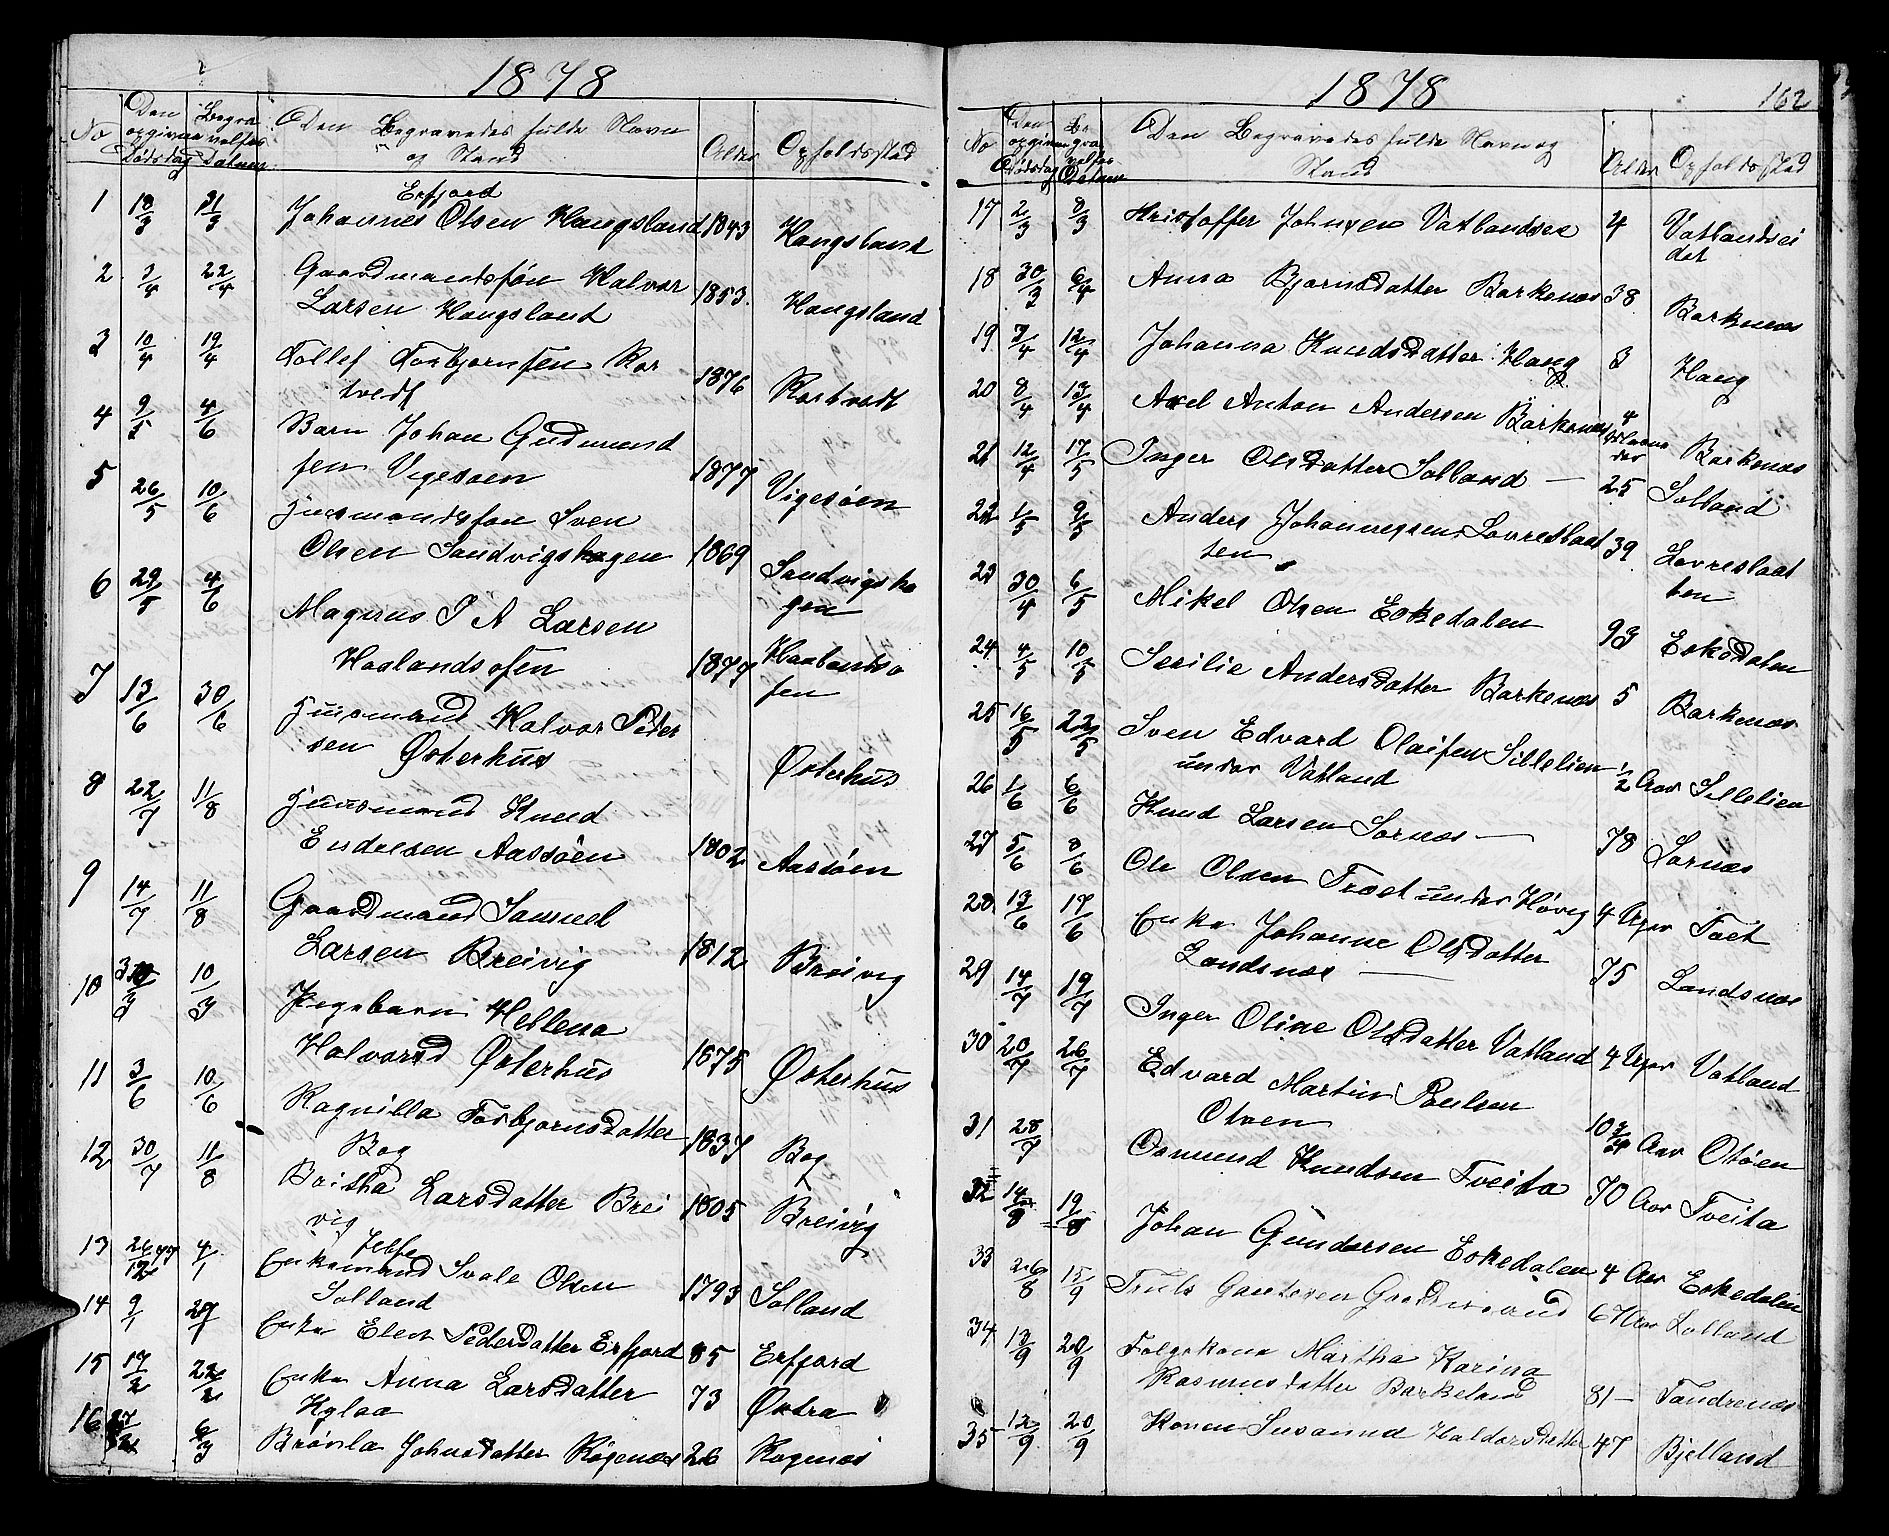 1878
No Den opgivne Dødsdag Begravelses Datum Den Begravedes fulde Navn og Stand Alder Opholdssted
Erfjord
1 18/3 21/3 Johannes Olsen Haugsland 1843 Haugsland
2 3/4 22/4 Gaardmandsøn Halvor
Larsen Haugsland 1853. Haugsland
3 10/4 19/4 Tollef Torbjørnsen Kor
tvedt 1876 Kortvedt
4 9/5 4/6 Barn Johan Gudmund
sen Vigesøen 1877 Vigesøen
5 26/5 10/6 Husmandssøn Sven
Olsen Sandvigshagen 1869 Sandvigsha
gen
6 29/5 4/6 Magnus P A Larsen
Haalandsosen 1877 Haalandso
sen
7 13/6 30/6 Husmand Halvor Peder
sen Østerhus Østerhus
8 22/7 11/8 Husmand Knud
Endresen Aasøen 1802 Aasøen
9 14/7 11/8 Gaardmand Samuel
Larsen Breivig 1812 Breivig
10 10/3 Pigebarn Hellena
Halvorsd Østerhus 1875 Østerhus
11 3/6 10/6 Ragnilla Torbjørnsdatter
Bog 1837 Bog
12 30/7 11/8 Britha Larsdatter Brei
vig 1805 Breivig
Jelse
13 26/12 77 4/1 Enkemand Svale Olsen
Solland 1793 Solland
14 9/1 Enke Elen Pedersdatter Erfjord 85 Erfjord
15 17/2 22/2 Enke Anna Larsdatter
Hylaa 73 Østraa
16 6/3 Brønla Johnsdatter Røgenæs 26 Rogenæs
1878 162
No Den opgivne Dødsdag Begravelses Datum Den Begravedes fulde Navn og Stand Alder Opholdssted
17 2/3 8/3 Kristoffer Johnsen Vatlandsei 4 Vatlandsei
det
18 30/3 6/4 Anna Bjørnsdatter Barkenæs 38. Barknæs
19 3/4 12/4 Johanna Knudsdatter Haug 3 Haug
20 8/4 13/4 Axel Anton Andersen Barkenæs 4 Maane
der Barkenæs
21 12/4 17/5 Inger Olsdatter Solland — 25 Solland
22 1/5 9/5 Anders Johannesen Lovreslaat
ten 39. Lovreslaat
ten
23 30/4 6/5 Mikel Olsen Eskedalen 93 Eskedalen
24 4/5 10/5 Serilie Andersdatter Barkenæs 5 Barkenæs
25 16/5 22/5 Sven Edvard Olaisen Sillelien
under Vatland 1/2 Aar Sillelien
26 1/6 6/6 Knud Larsen Sornæs — 78 Sornæs
27 5/6 8/6 Ole Olsen Træet under Høvig 4 Uger Træet
28 13/6 17/6 Enke Johanne Olsdatter
Landsnæs — 75 Landsnæs
29 14/7 19/7 Inger Oline Olsdatter Vatland 4 Uger Vatland
30 20/7 26/7 Edvard Martin Poulsen
Otøen 10 3/4 Aar Otøen
31 28/7 Osmund Knudsen Tveita 70 Aar Tveita
32 14/8 19/8 Johan Gundersen Eskedalen 4 Aar Eskedalen
33 26/8 15/9 Truls Gautesen Gaardmand 67 Aar Lolland
34 13/9 20/9 Følgekone Martha Karina
Rasmusdatter Barkeland 81 — Tandrenæs
35 12/9 20/9 Konen Susanna Haldorsdatter 47 Bjelland